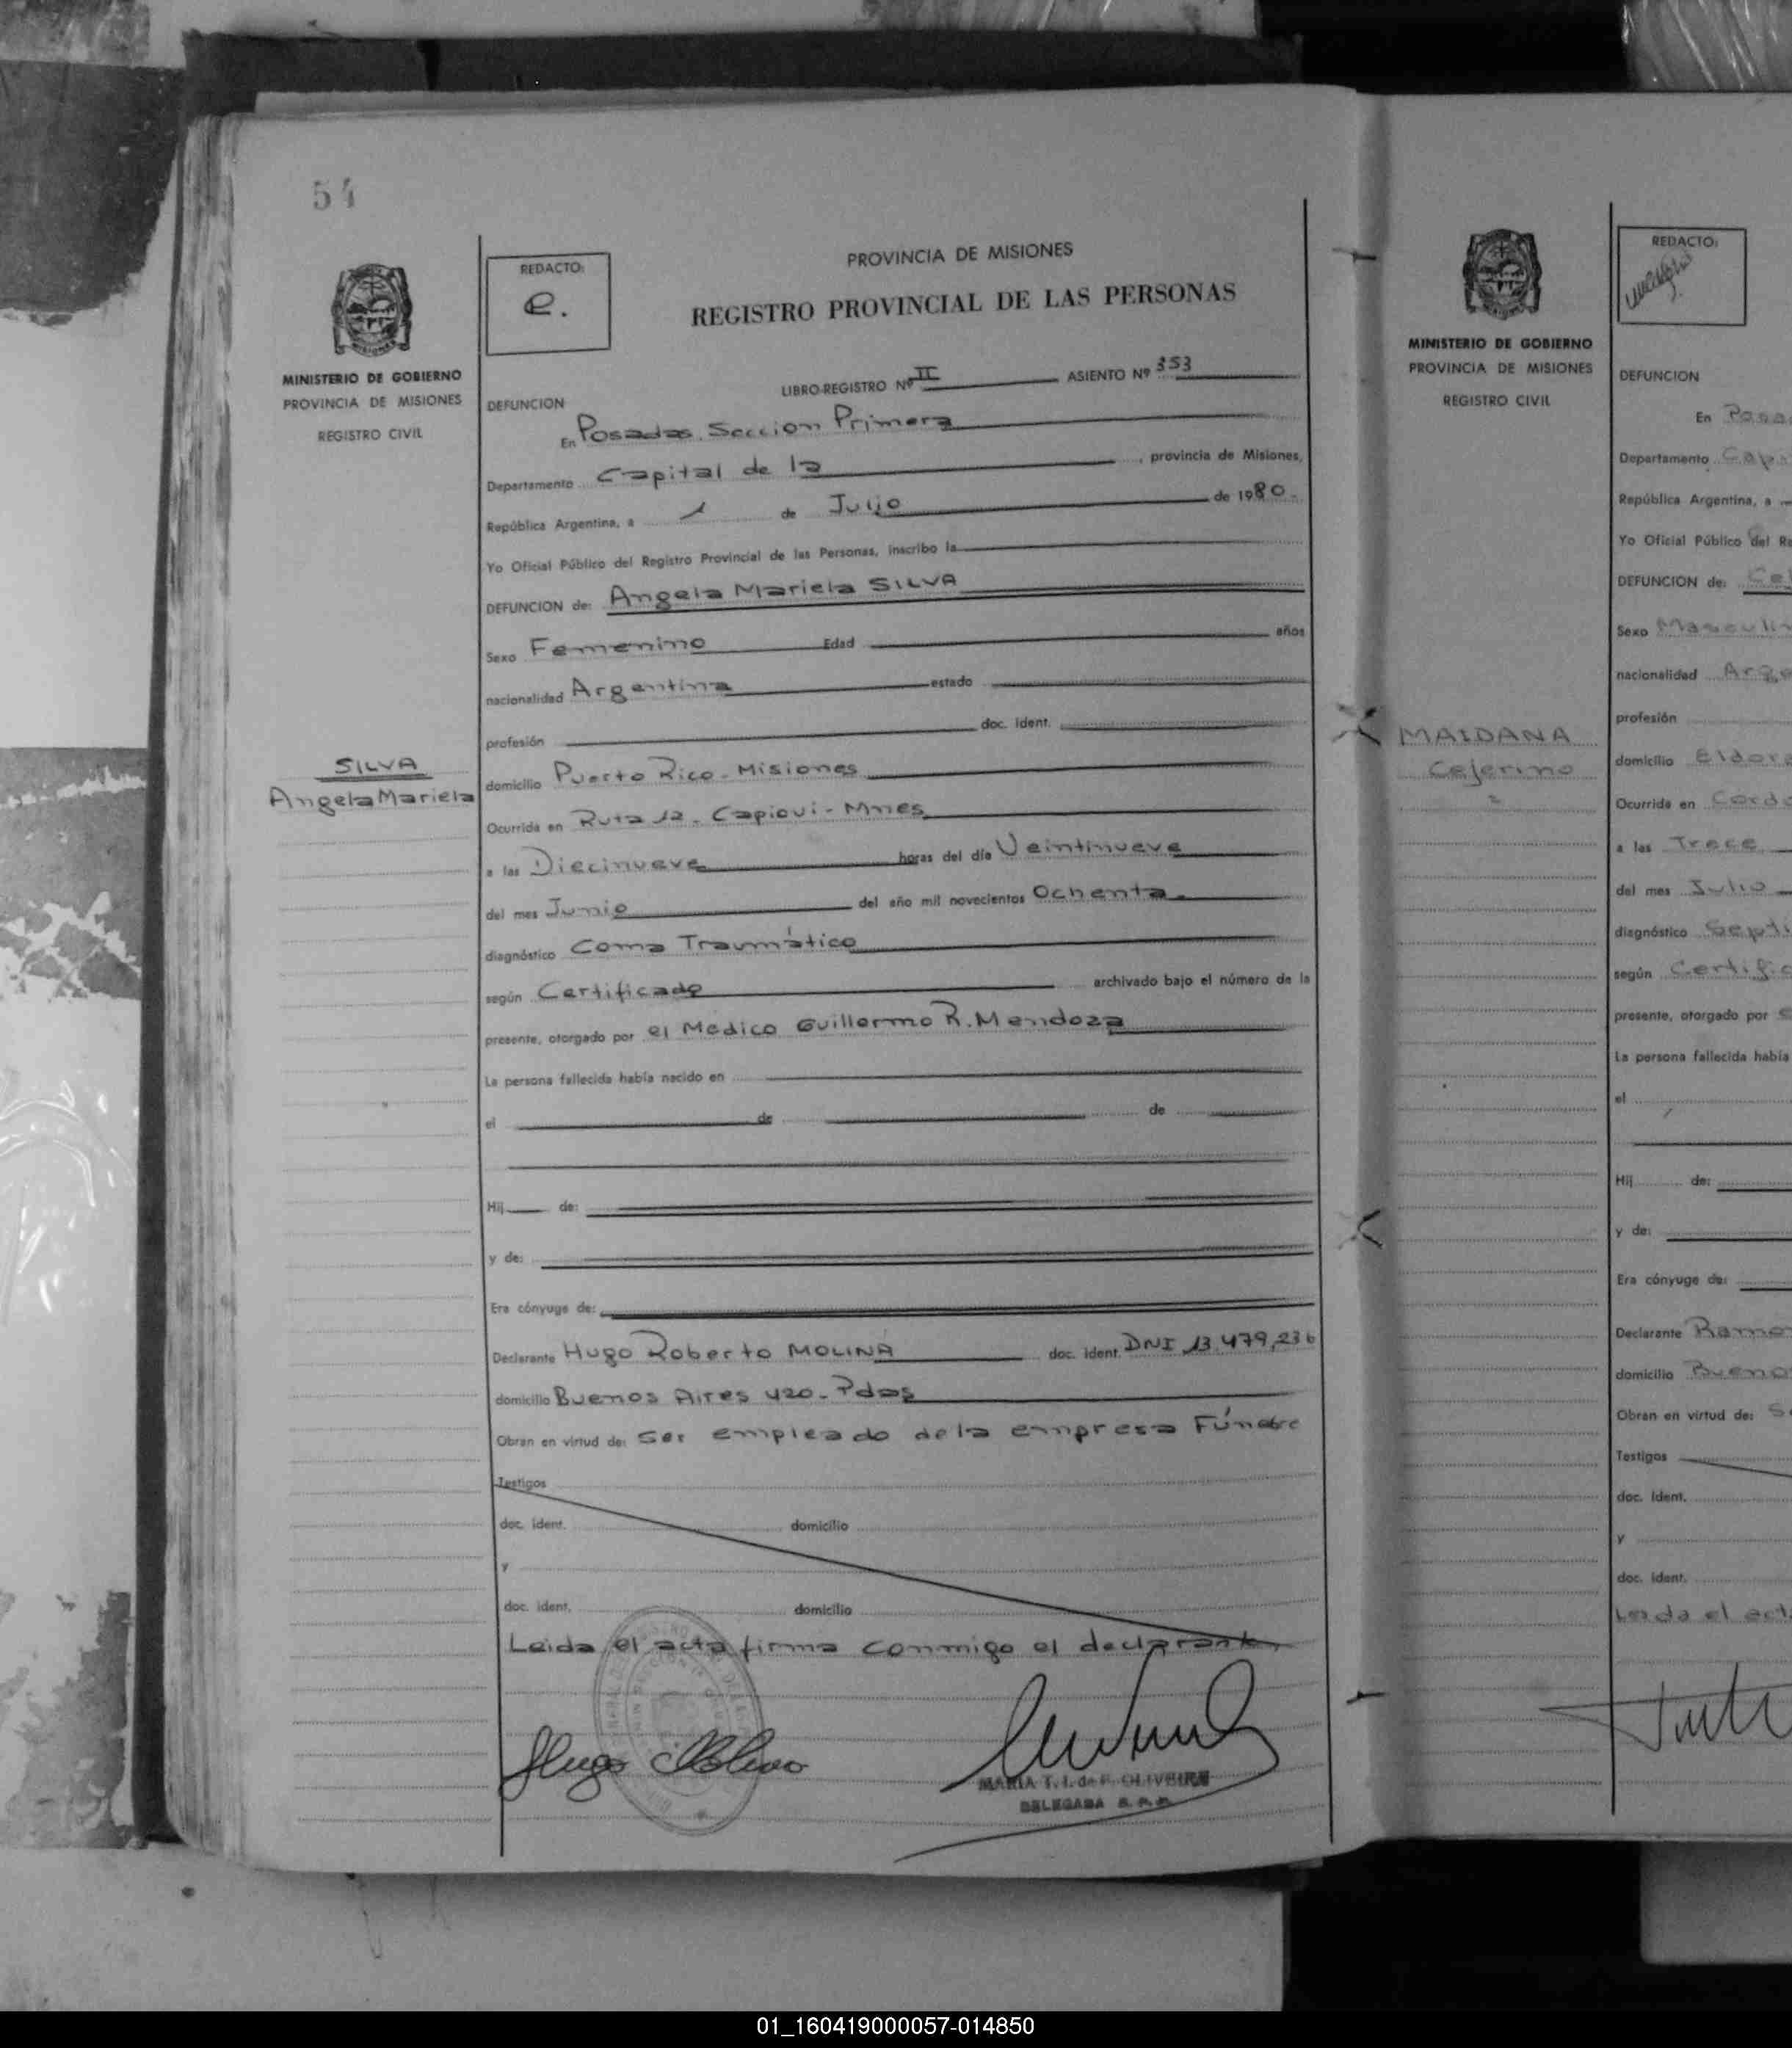 54
MINISTERIO DE GOBIERNO
PROVINCIA DE MISIONES
REGISTRO CIVIL
SILVA
Angela Mariela
REDACTO:
e.
PROVINCIA DE MISIONES
REGISTRO PROVINCIAL DE LAS PERSONAS
LIBRO-REGISTRO Nº II ASIENTO Nº 353
DEFUNCION
En Posadas, Seccion Primera
Departamento Capital de la, provincia de Misiones,
República Argentina, a 1 de Julio de 1980.
Yo Oficial Público del Registro Provincial de las Personas, inscribo la
DEFUNCION de: Angela Mariela SILVA
Sexo Femenino Edad años
nacionalidad Argentina estado
profesión doc. ident.
domicilio Puerto Rico - Misiones
Ocurrida en Ruta 12 - Capiovi - Mnes
a las Diecinueve horas del día Veintinueve
del mes Junio del año mil novecientos Ochenta.
diagnóstico Coma Traumático
según Certificado archivado bajo el número de la
presente, otorgado por el Medico Guillermo R. Mendoza
La persona fallecida había nacido en
el de de
Hij de:
y de:
Era cónyuge de:
Declarante Hugo Roberto MOLINA doc. ident. DNI 13.479,236
domicilio Buenos Aires 420 - Pdas
Obran en virtud de: ser empleado de la empresa Fúnebre
Testigos
doc. ident. domicilio
y
doc. ident. domicilio
Leida el acta firma conmigo el declarante,
Hugo
MARIA T. I. de F. OLIVEIRA
DELEGADA R. P. P.
MINISTERIO DE GOBIERNO
PROVINCIA DE MISIONES
REGISTRO CIVIL
MAIDANA
Ceferino
REDACTO:
DEFUNCION
En Posa
Departamento Capi
República Argentina, a
Yo Oficial Público del Re
DEFUNCION de: Cef
Sexo Masculin
nacionalidad Arge
profesión
domicilio Eldora
Ocurrida en Cordo
a las Trece
del mes Julio
diagnóstico Septi
según Certific
presente, otorgado por e
La persona fallecida había
el
Hij de:
y de:
Era cónyuge de:
Declarante Ramo
domicilio Bueno
Obran en virtud de: Se
Testigos
doc. ident.
y
doc. ident.
Leida el acta
01_160419000057-014850